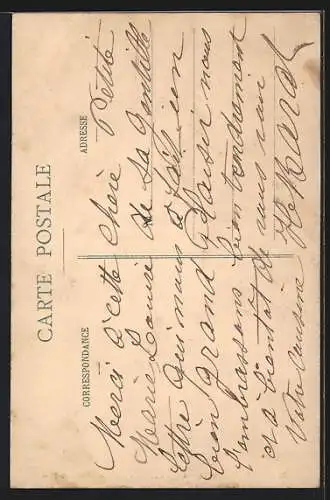 CARTE POSTALE
CORRESPONDANCE
ADRESSE
Merci à cette chère Petite
Marie Louise de sa gentille
lettre qui nous a fait un
bien grand plaisir nous
l'embrassons bien tendrement
et à bientôt de nous
Votre cousine